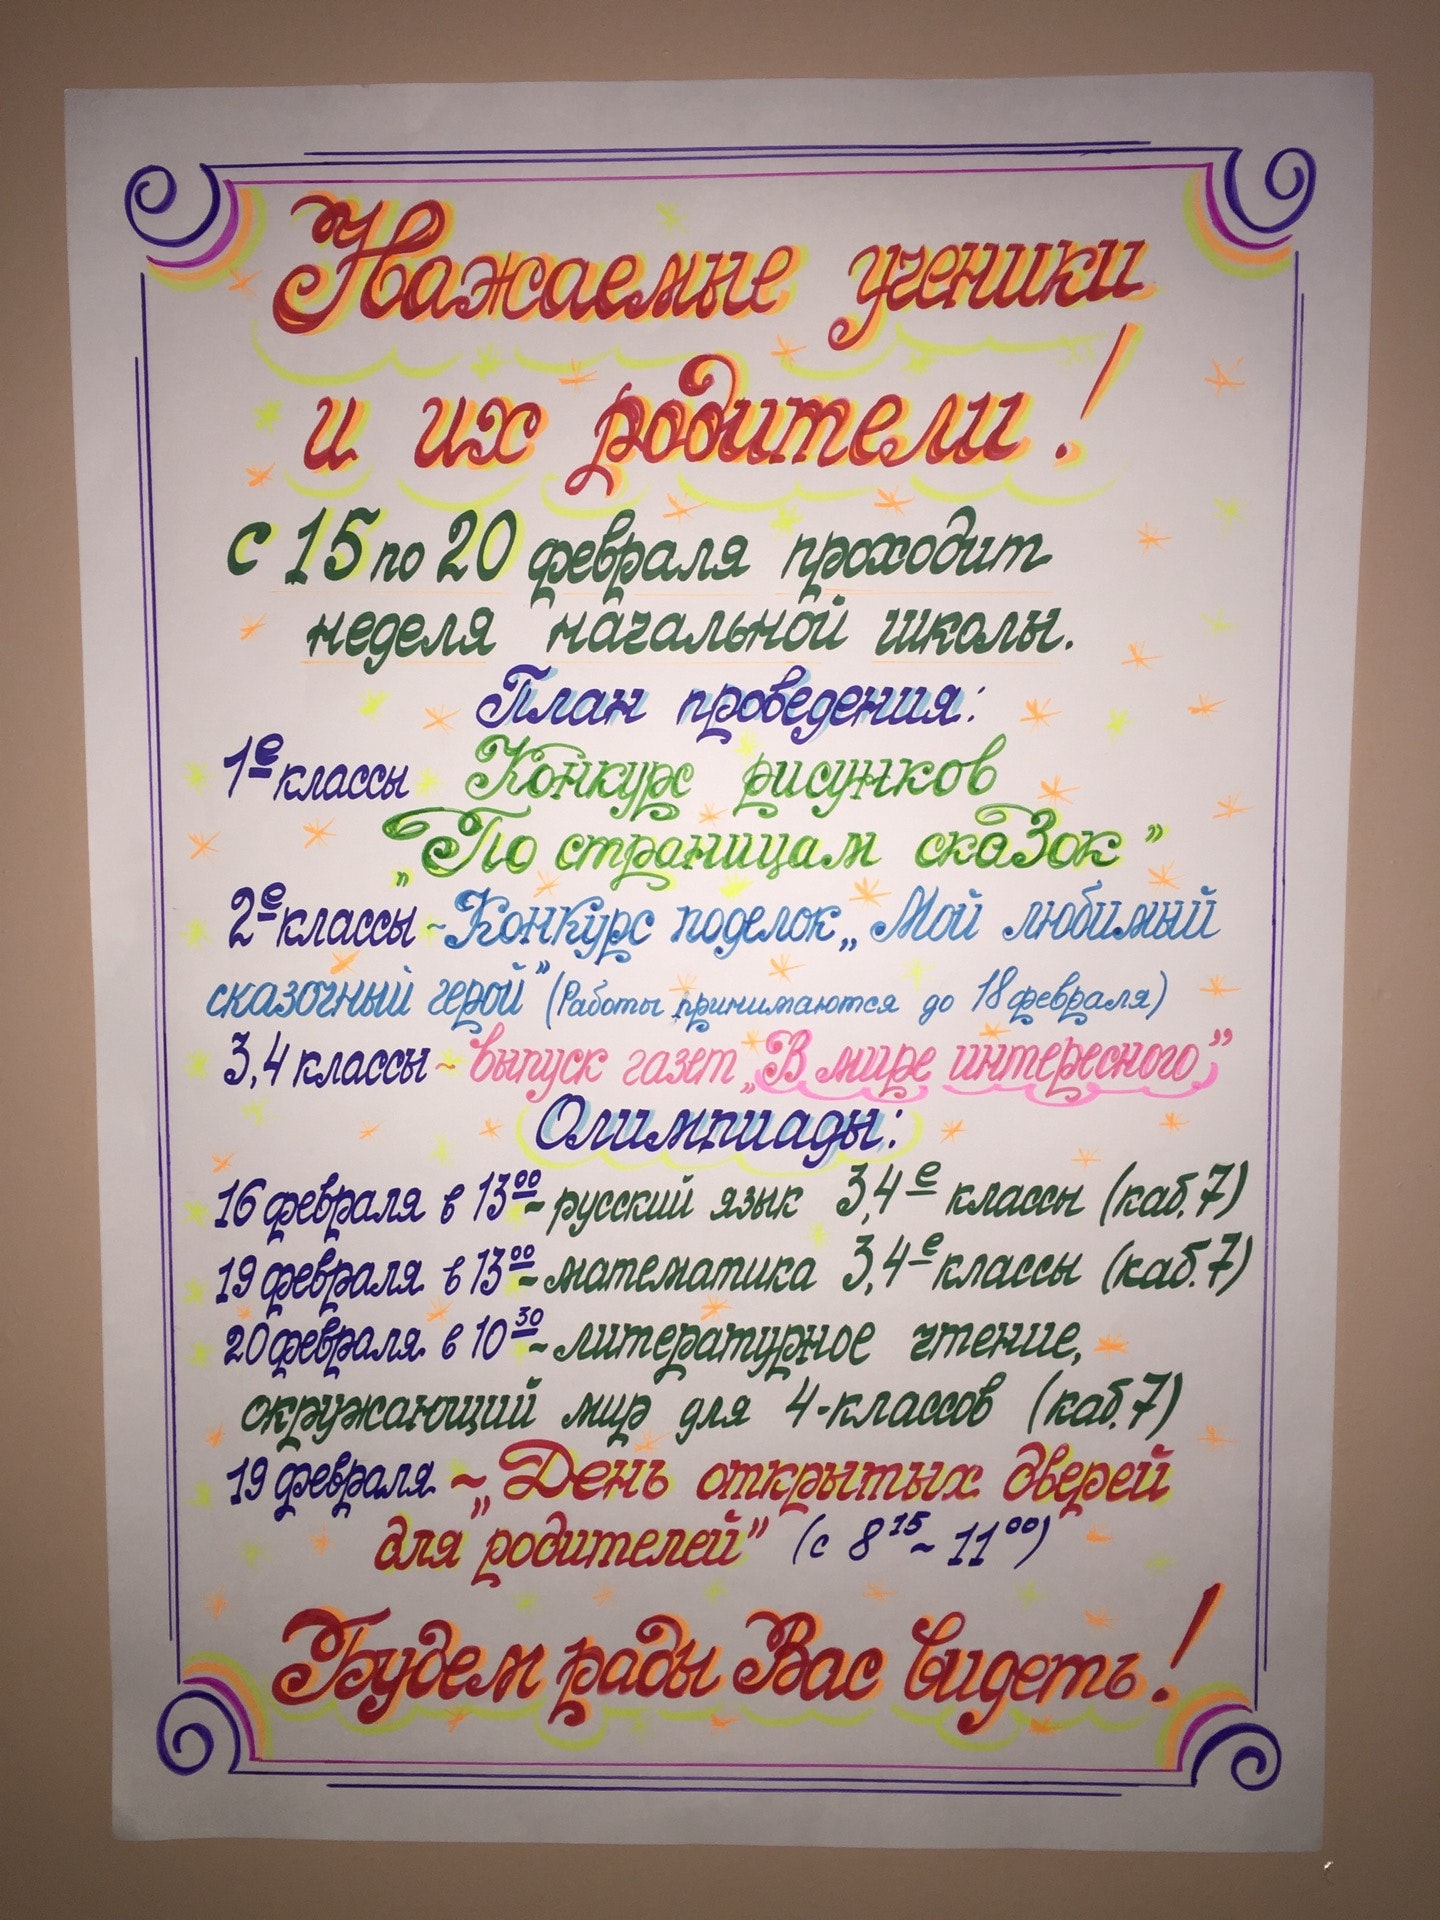 Уважаемые ученики
и их родители!
с 15 по 20 февраля проходит
неделя начальной школы.
План проведения:
1е классы Конкурс рисунков
„По страницам сказок”
2е классы ~ Конкурс поделок „Мой любимый
сказочный герой” (Работы принимаются до 18 февраля)
3,4 классы ~ выпуск газет „В мире интересного”
Олимпиады:
16 февраля в 13 00 ~ русский язык 3,4е классы (каб. 7)
19 февраля в 13 00 ~ математика 3,4е классы (каб. 7)
20 февраля в 10 30 ~ литературное чтение,
окружающий мир для 4-классов (каб. 7)
19 февраля ~ „День открытых дверей
для родителей” (с 8 15 ~ 11 00)
Будем рады Вас видеть!